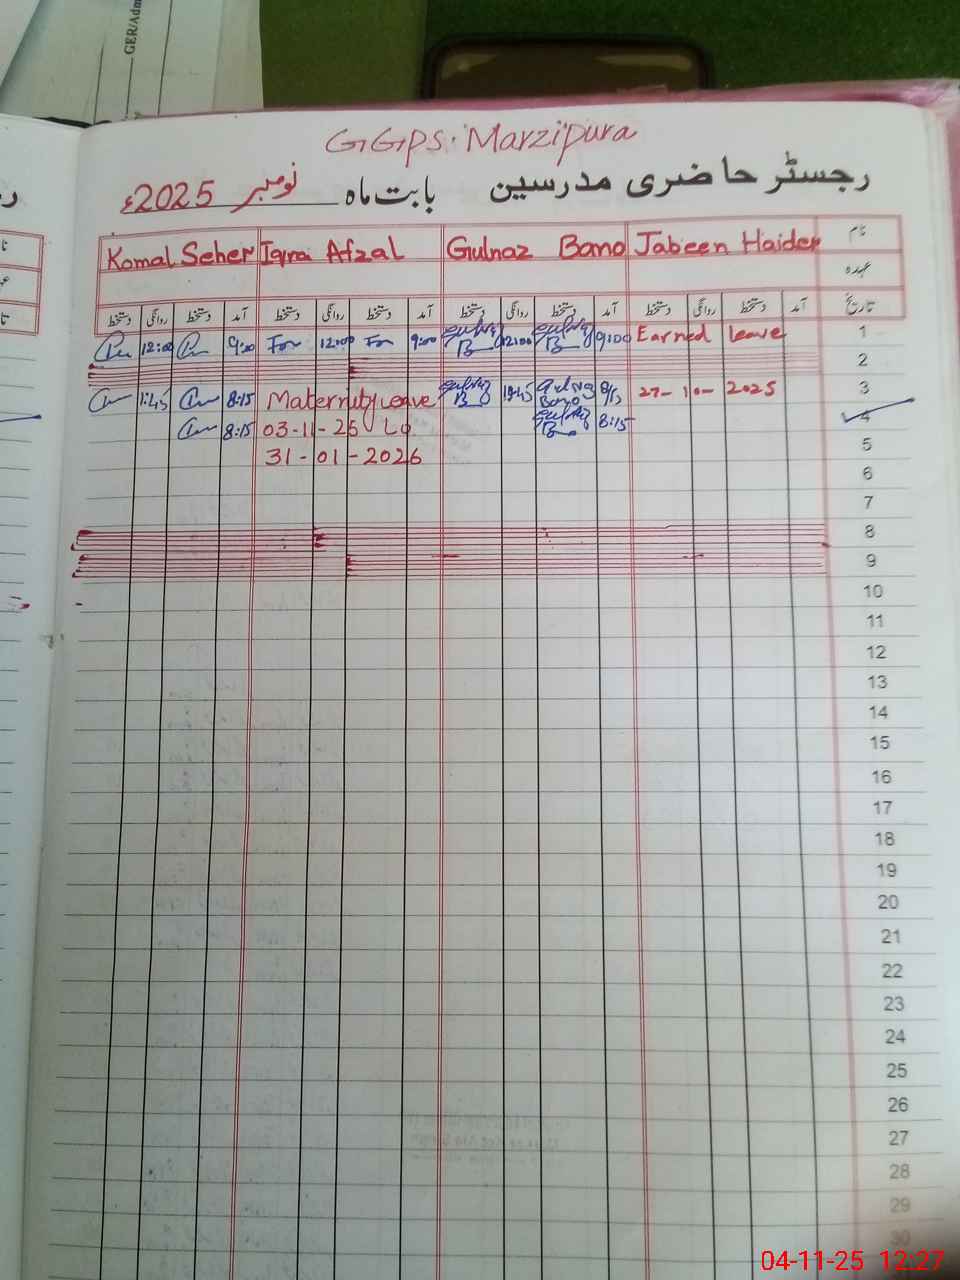 GER/Adm
GGPS. Marzipura
رجسٹر حاضری مدرسین بابت ماہ نومبر 2025ء
نام Jabeen Haider Gulnaz Bano Iqra Afzal Komal Seher
عہدہ
تاریخ آمد دستخط روانگی دستخط آمد دستخط روانگی دستخط آمد دستخط روانگی دستخط آمد دستخط روانگی دستخط
1 Earned leave 9:00 12:00 9:00 12:00 9:00 12:00
2
3 27-10-2025 Gulnaz Bano Maternity leave 8:15 1:45
4 8:15 03-11-25 to 8:15
5 31-01-2026
6
7
8
9
10
11
12
13
14
15
16
17
18
19
20
21
22
23
24
25
26
27
28
29
30
04-11-25 12:27